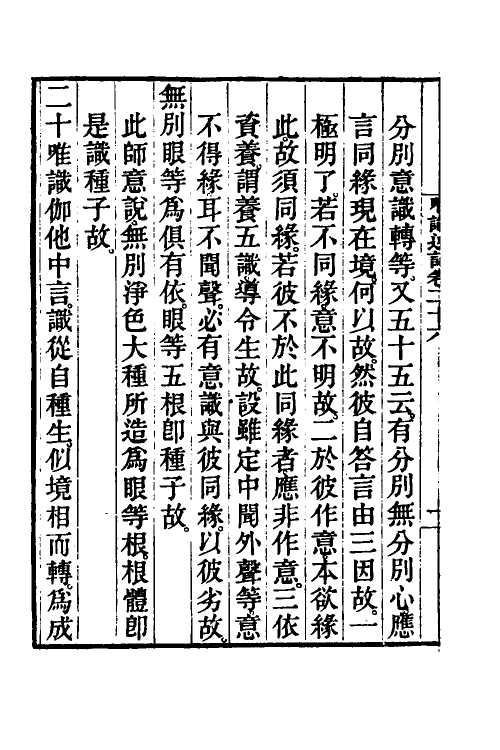 唯識述記卷二十六
分別意識轉等。又五十五云。有分別無分別心應
言同緣現在境。何以故。然彼自答言由三因故。一
極明了。若不同緣。意不明故。二於彼作意。本欲緣
此。故須同緣。若彼不於此同緣者。應非作意。三依
資養。謂養五識導令生故。設雖定中聞外聲等。意
不得緣耳不聞聲。必有意識與彼同緣。以彼劣故。
無別眼等爲俱有依。眼等五根卽種子故。
此師意說。無別淨色大種所造爲眼等根。根體卽
是識種子故。
二十唯識伽他中言。識從自種生。似境相而轉。爲成